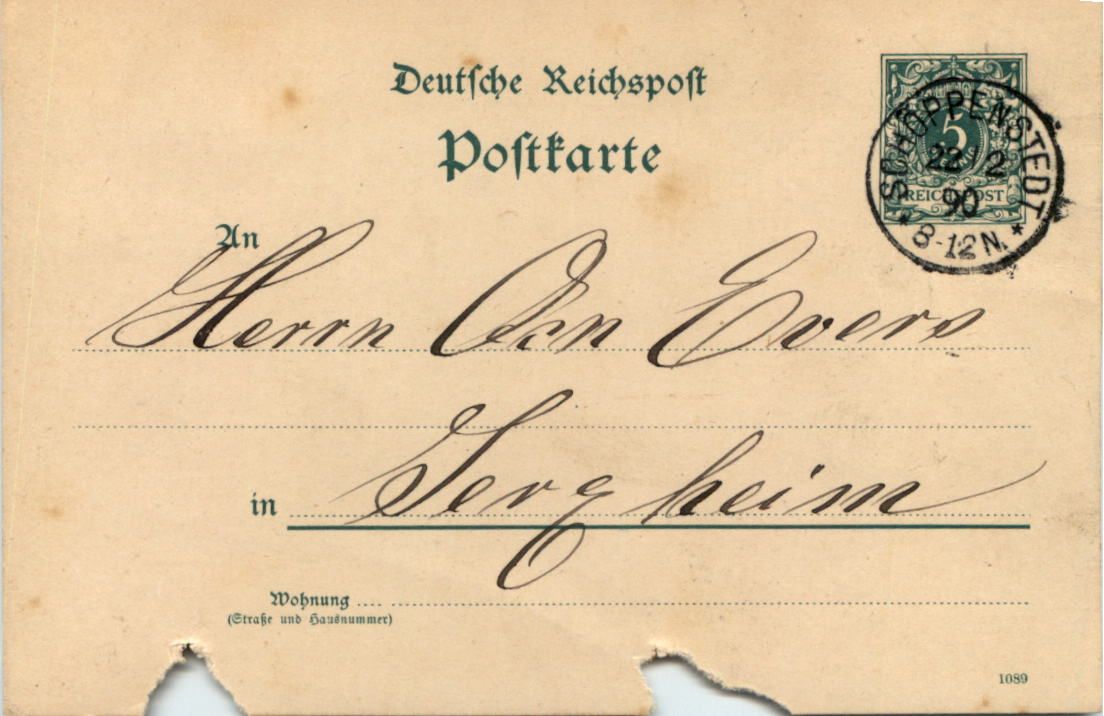 Deutsche Reichspost
Postkarte
5
REICHSPOST
SCHÖPPENSTEDT
22 2
90
* 8-12N. *
An
Herrn Evers
in Jerxheim
Wohnung
(Straße und Hausnummer)
1089